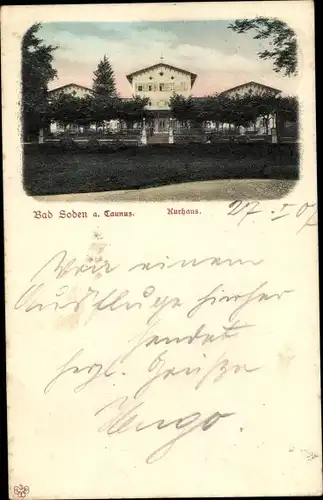 Bad Soden a. Taunus. Kurhaus.
27. I. 07
Von einem
Ausfluge hierher
sendet
herzl. Grüße
Hugo.